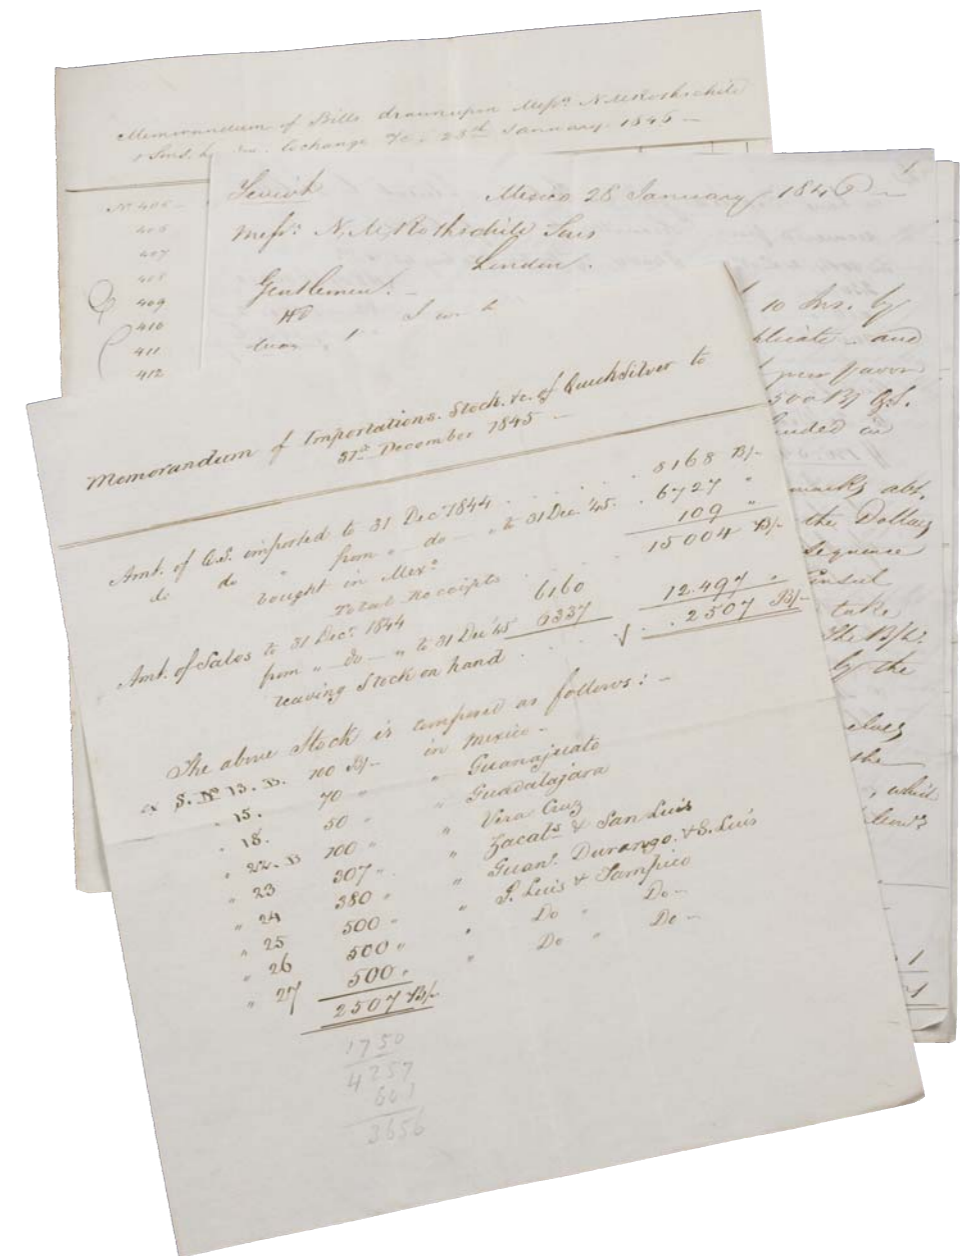 Memorandum of Bills drawn upon Messrs. N M Rothschild
& Sons, Exchange &c. 28th January 1846 —
No 405 —
406
407
408
409
410
411
412
1
Mexico 28 January 1846 —
Messrs. N. M. Rothschild Sons
London.
Gentlemen. —
10 Ins. by
plicate and
per favor
500 B/ Q.S.
in
marks abt.
the Dollars
sequence
take
The B/-
by the
the
which
1
1
Memorandum of Importations. Stock. &c. of QuickSilver to
31st December 1845 —
Amt. of Q.S. imported to 31 Decr 1844 . . . . 8168 B/-
do do " from " do — " to 31 Dec. '45 . 6727 "
bought in Mexo 109 "
Total receipts . . . 15004 B/-
Amt. of Sales to 31 Decr. 1844 6160
from " do — " to 31 Dec '45 6337 12.497 "
leaving Stock on hand . . . . 2507 B/-
The above Stock is composed as follows: —
S. No 13. B. 100 B/- in Mexico —
" 15. 70 " " Guanajuato
" 18. 50 " " Guadalajara
" 22. B 100 " " Vera Cruz
" 23 307 " " Zacats & San Luis
" 24 380 " " Guant. Durango. & S. Luis
" 25 500 " " S. Luis & Tampico
" 26 500 " " Do " Do —
" 27 500 " " Do " Do —
2507 B/-
1750
4257
601
3656